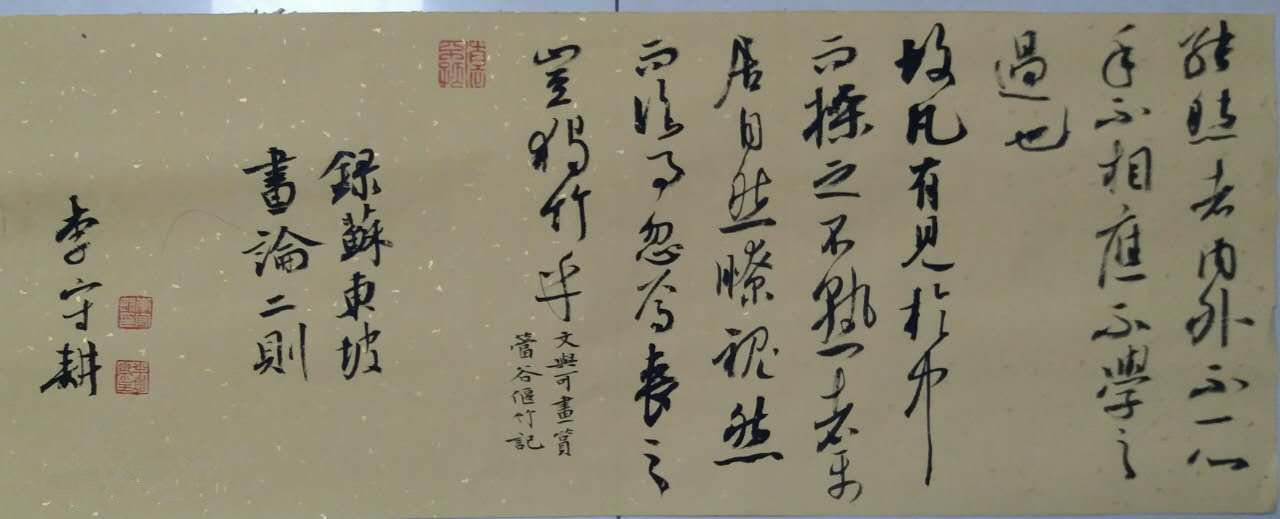 能然者內外不一心
手不相應不學之
過也
故凡有見於中
而操之不熟者平
居自然瞭視然
而臨事忽焉喪之
豈獨竹乎
文與可畫篔
簹谷偃竹記
録蘇東坡
畫論二則
李守耕